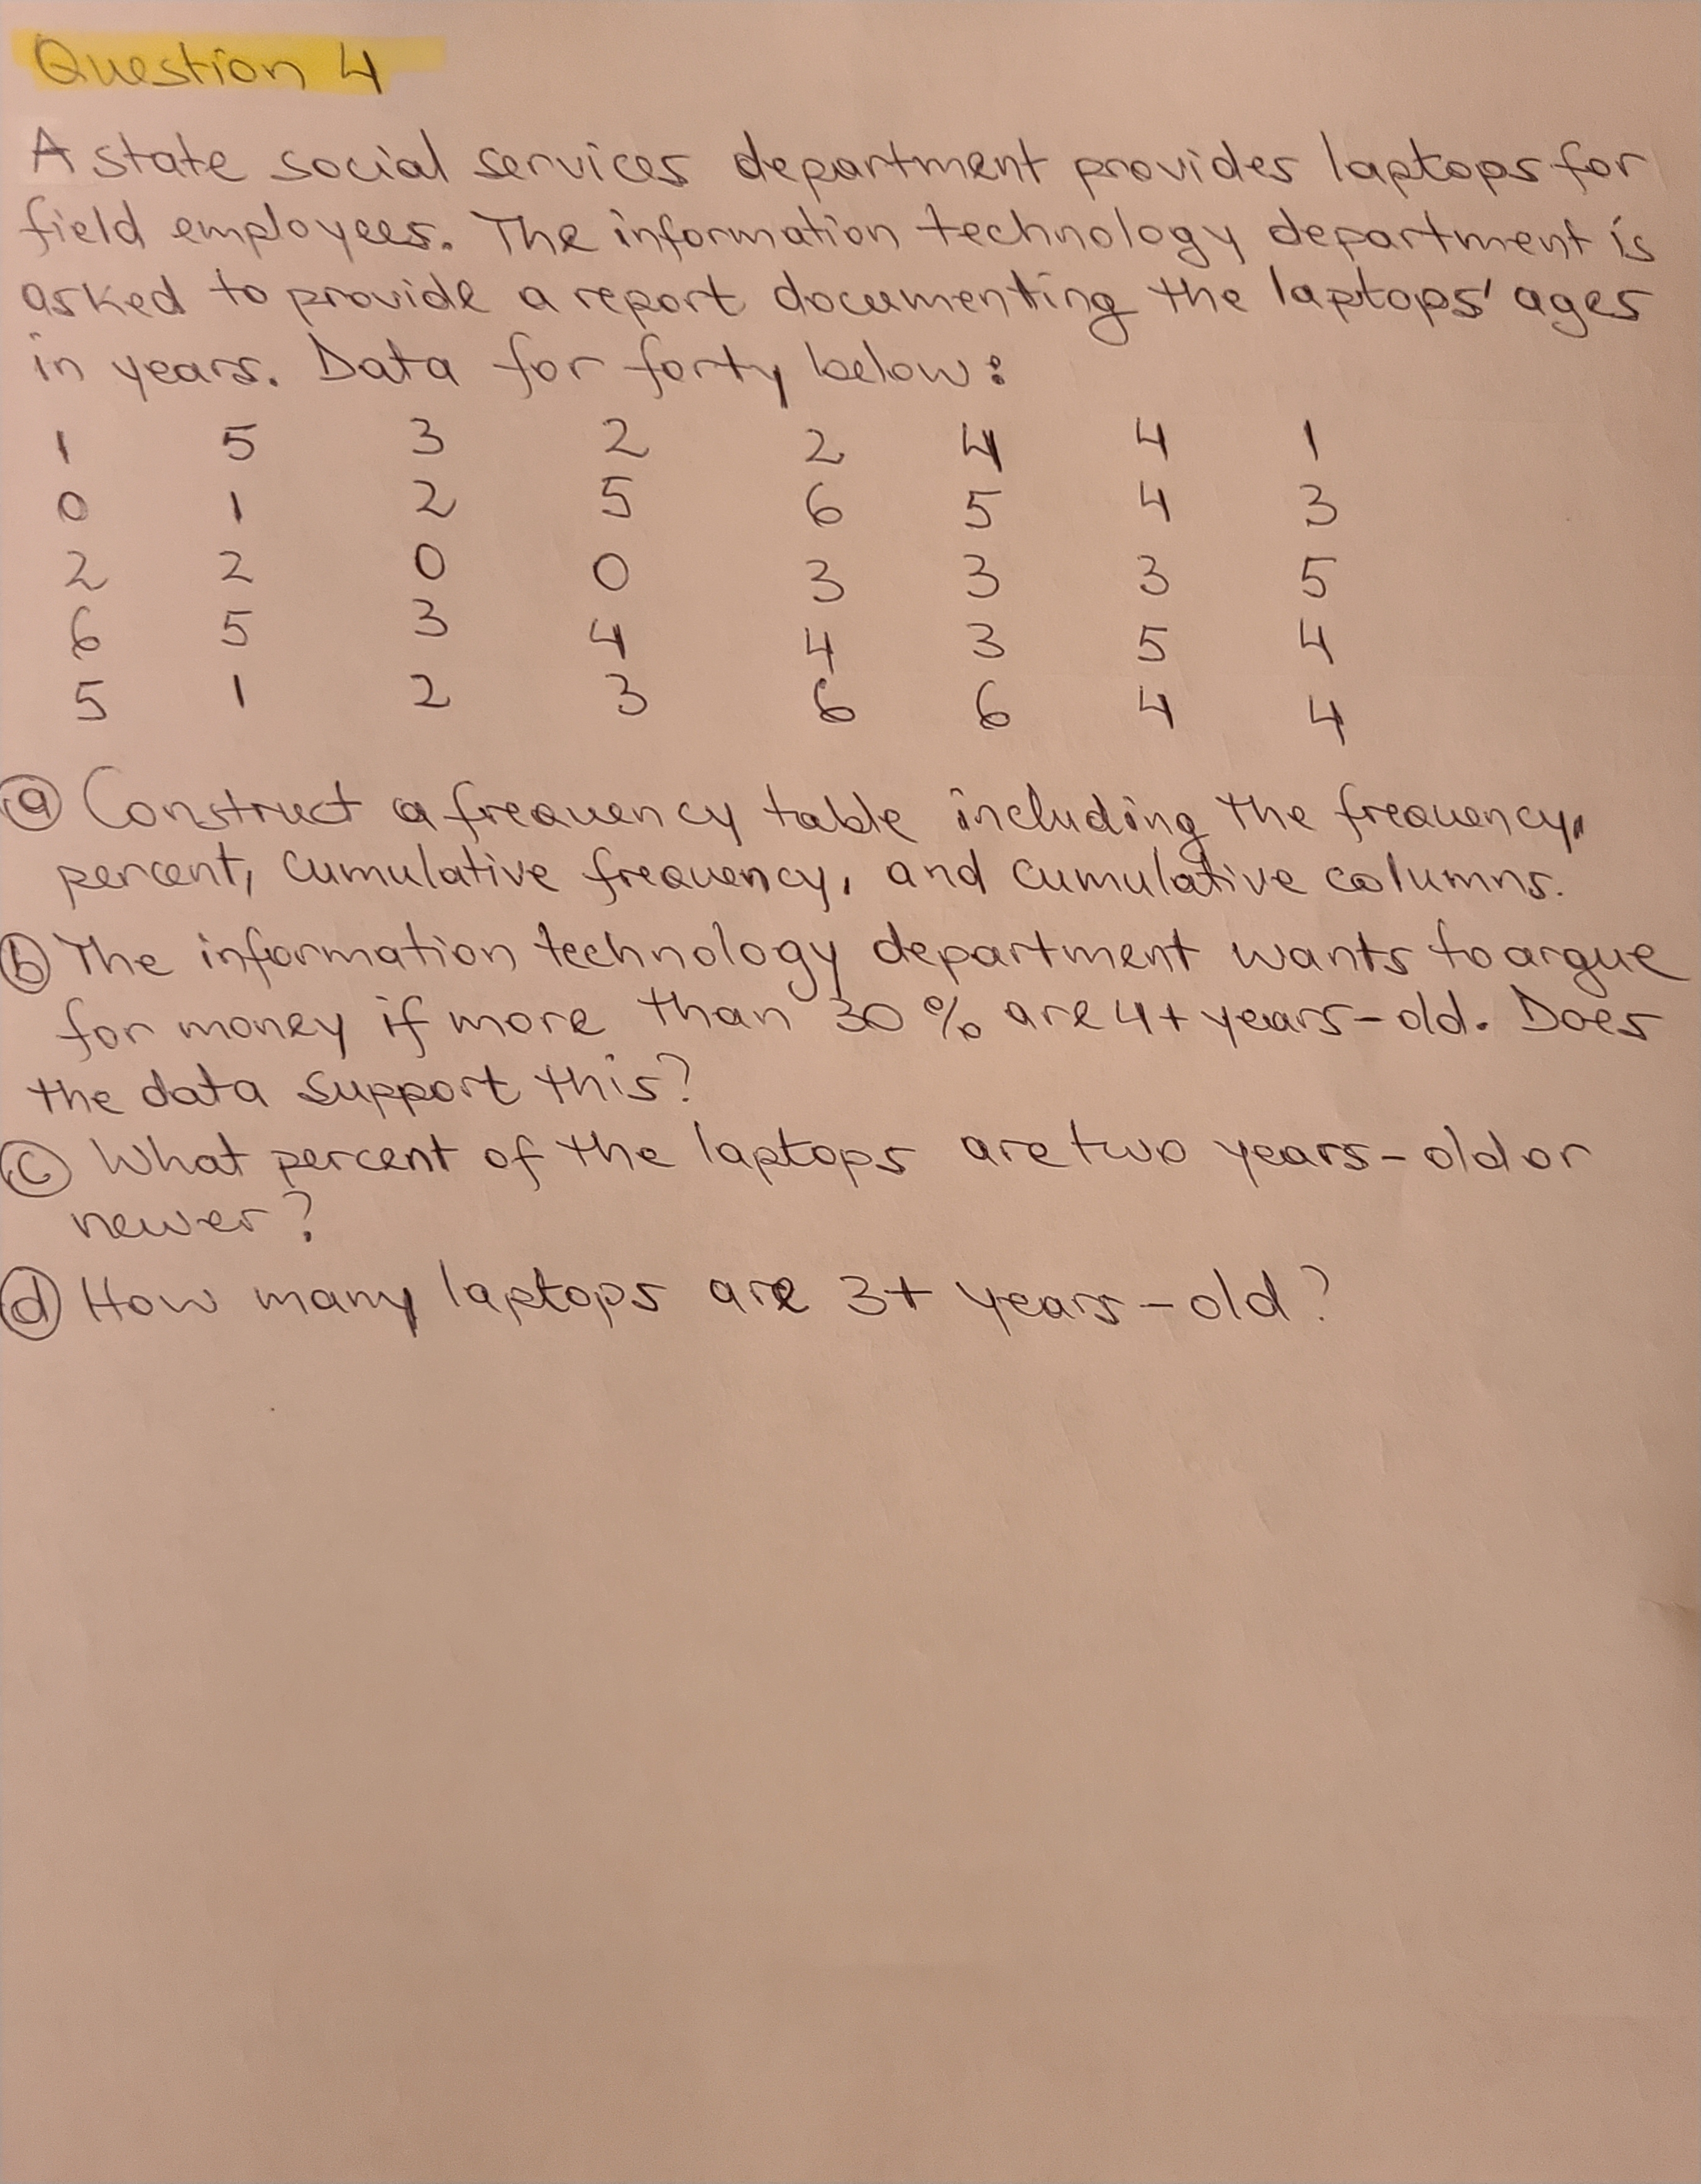 Question 4
A state social services department provides laptops for
field employees. The information technology department is
asked to provide a report documenting the laptops' ages
in years. Data for forty below:
1 5 3 2 2 4 4 1
0 1 2 5 6 5 4 3
2 2 0 0 3 3 3 5
6 5 3 4 4 3 5 4
5 1 2 3 6 6 4 4
ⓐ Construct a frequency table including the frequency,
percent, cumulative frequency, and cumulative columns.
ⓑ The information technology department wants to argue
for money if more than 30% are 4+ years-old. Does
the data support this?
ⓒ What percent of the laptops are two years-old or
newer?
ⓓ How many laptops are 3+ years-old?